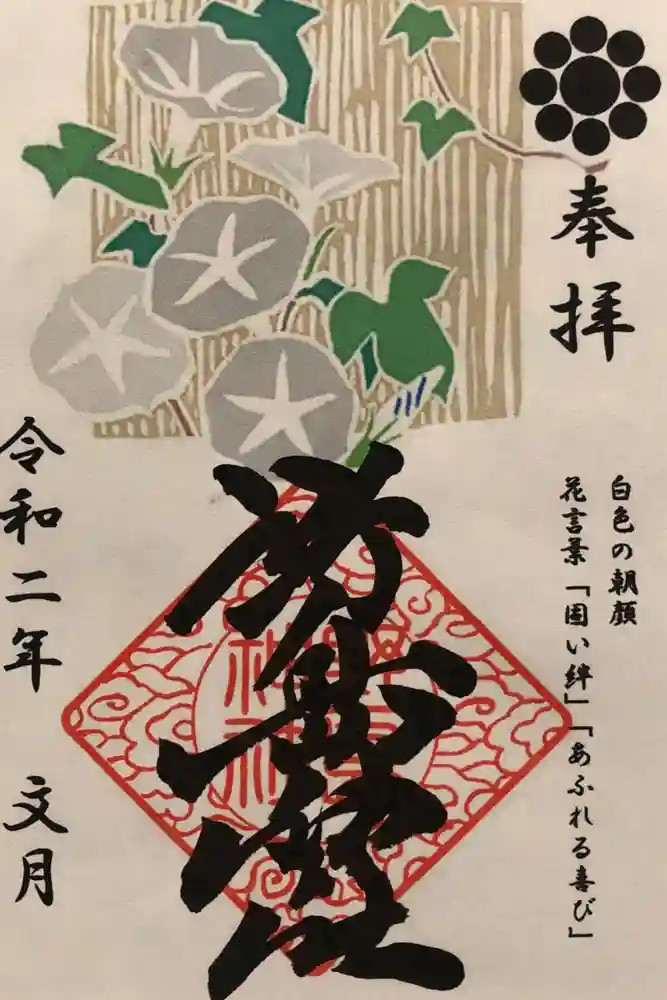 奉拝
白色の朝顔
花言葉「固い絆」「あふれる喜び」
神社
令和二年 文月